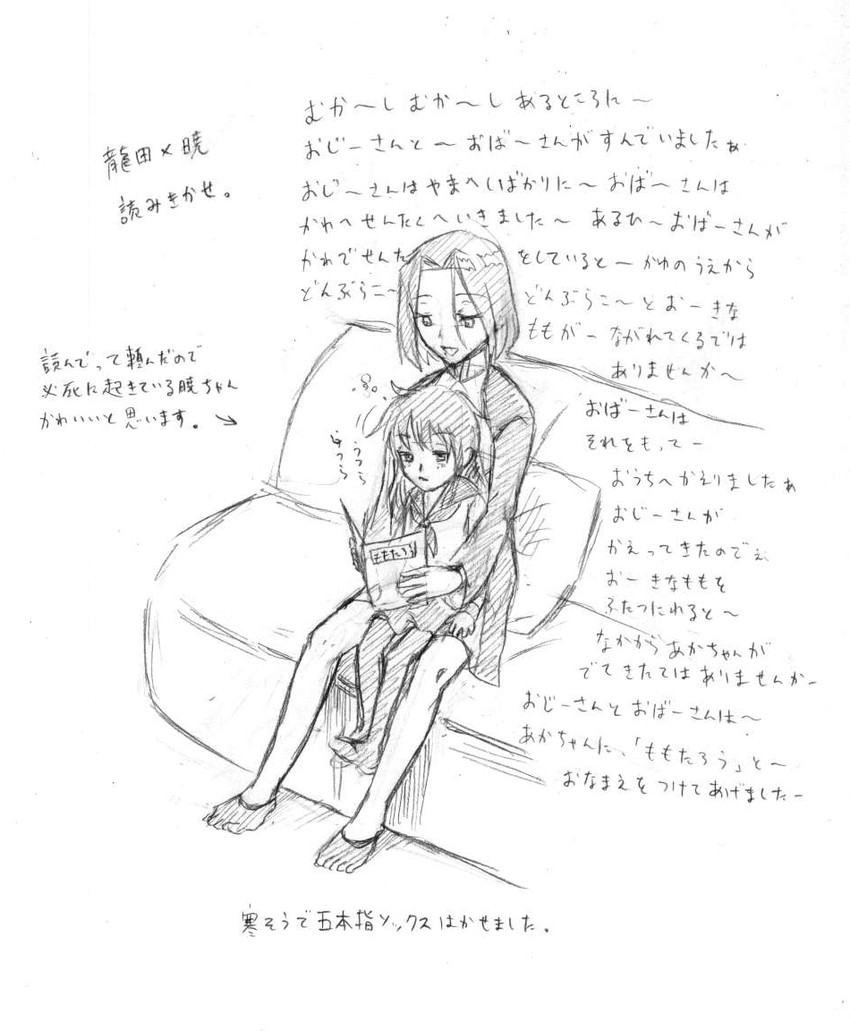 龍田×暁
読みきかせ。
むか〜し むか〜し あるところに〜
おじーさんと〜 おば〜さんが すんでいましたぁ
おじ〜さんは やまへ しばかりに〜 おば〜さんは
かわへ せんたくへ いきました〜 あるひ〜 おばーさんが
かわで せんた をしていると〜 かわのうえから
どんぶらこ〜 どんぶらこ〜と おーきな
ももがー ながれてくるでは
ありませんか〜
おばーさんは
それをもってー
おうちへ かえりましたぁ
おじーさんが
かえってきたのでぇ
おーきなももを
ふたつにわると〜
なかから あかちゃんが
でてきたではありませんかー
おじーさんと おばーさんは〜
あかちゃんに、「ももたろう」と〜
おなまえを つけてあげましたー
読んでって頼んだので
必死に起きている暁ちゃん
かわいいと思います。
うつら
うつら
ももたろう
寒そうで五本指ソックスはかせました。